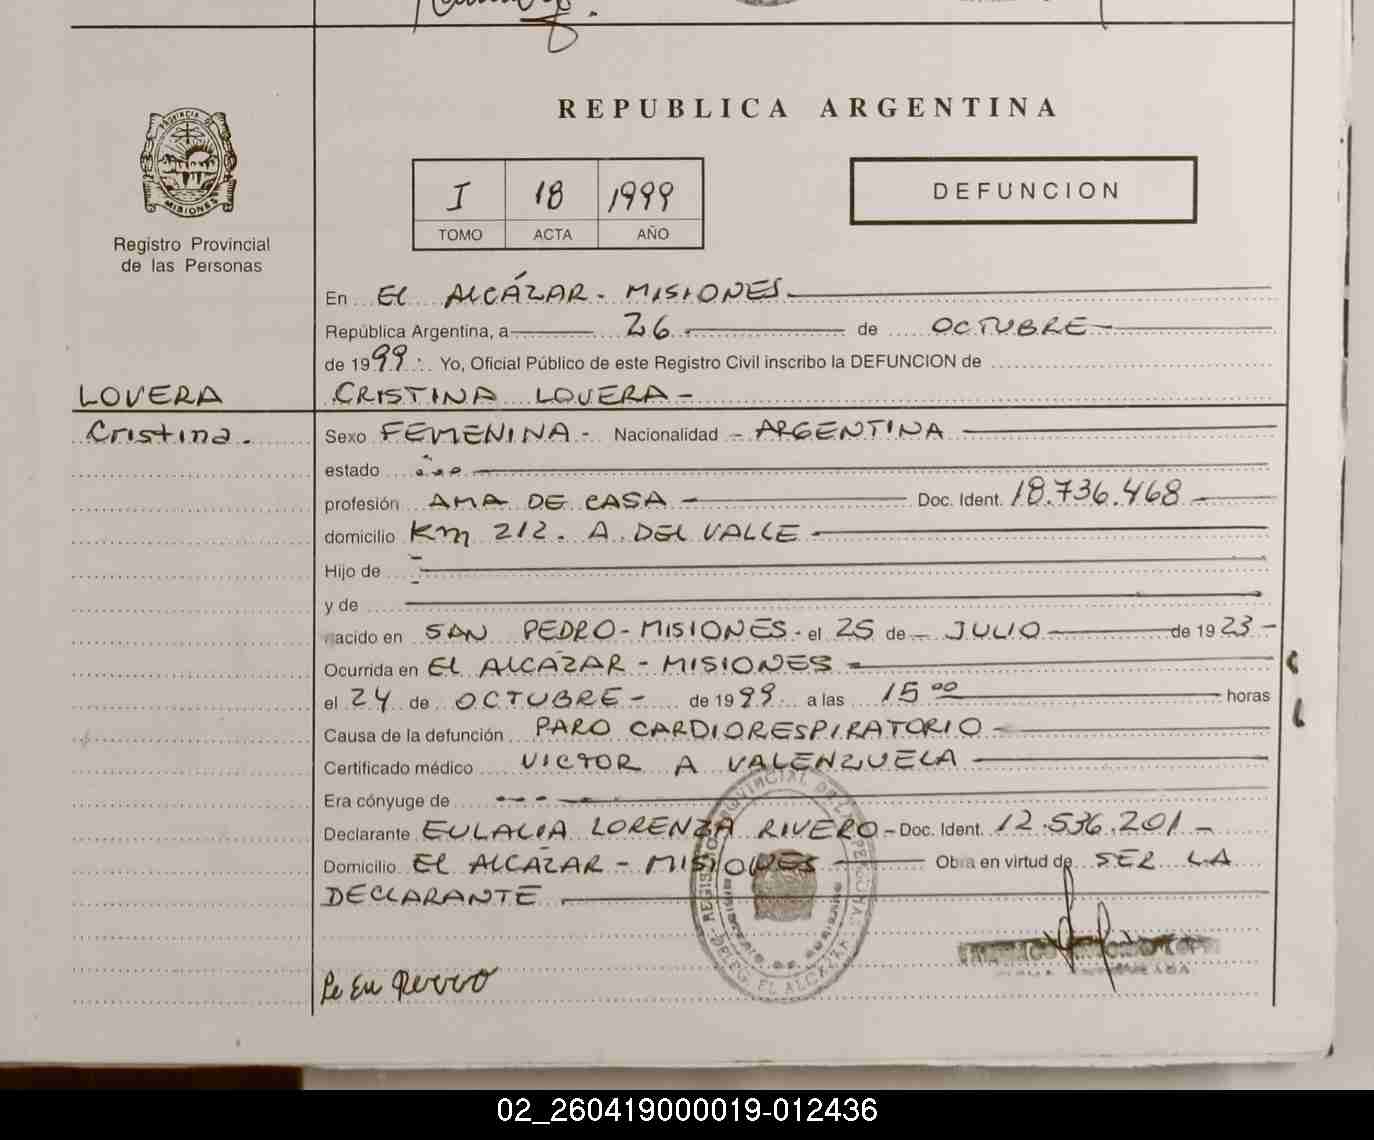 REPUBLICA ARGENTINA
PROVINCIA DE
MISIONES
Registro Provincial
de las Personas
I 18 1999
TOMO ACTA AÑO
DEFUNCION
En EL ALCÁZAR - MISIONES
República Argentina, a 26 de OCTUBRE
de 1999. Yo, Oficial Público de este Registro Civil inscribo la DEFUNCION de
LOVERA
Cristina.
CRISTINA LOVERA
Sexo FEMENINA - Nacionalidad - ARGENTINA
estado
profesión AMA DE CASA - Doc. Ident. 18.736.468
domicilio Km 212. A. DEL VALLE
Hijo de
y de
nacido en SAN PEDRO - MISIONES - el 25 de JULIO de 1923 -
Ocurrida en EL ALCAZAR - MISIONES
el 24 de OCTUBRE - de 1999 a las 15 00 horas
Causa de la defunción PARO CARDIORESPIRATORIO
Certificado médico VICTOR A VALENZUELA
Era cónyuge de
Declarante EULALIA LORENZA RIVERO - Doc. Ident. 12.536.201 -
Domicilio EL ALCAZAR - MISIONES Obra en virtud de SER LA
DECLARANTE
DELEG. EL ALCAZAR
02_260419000019-012436